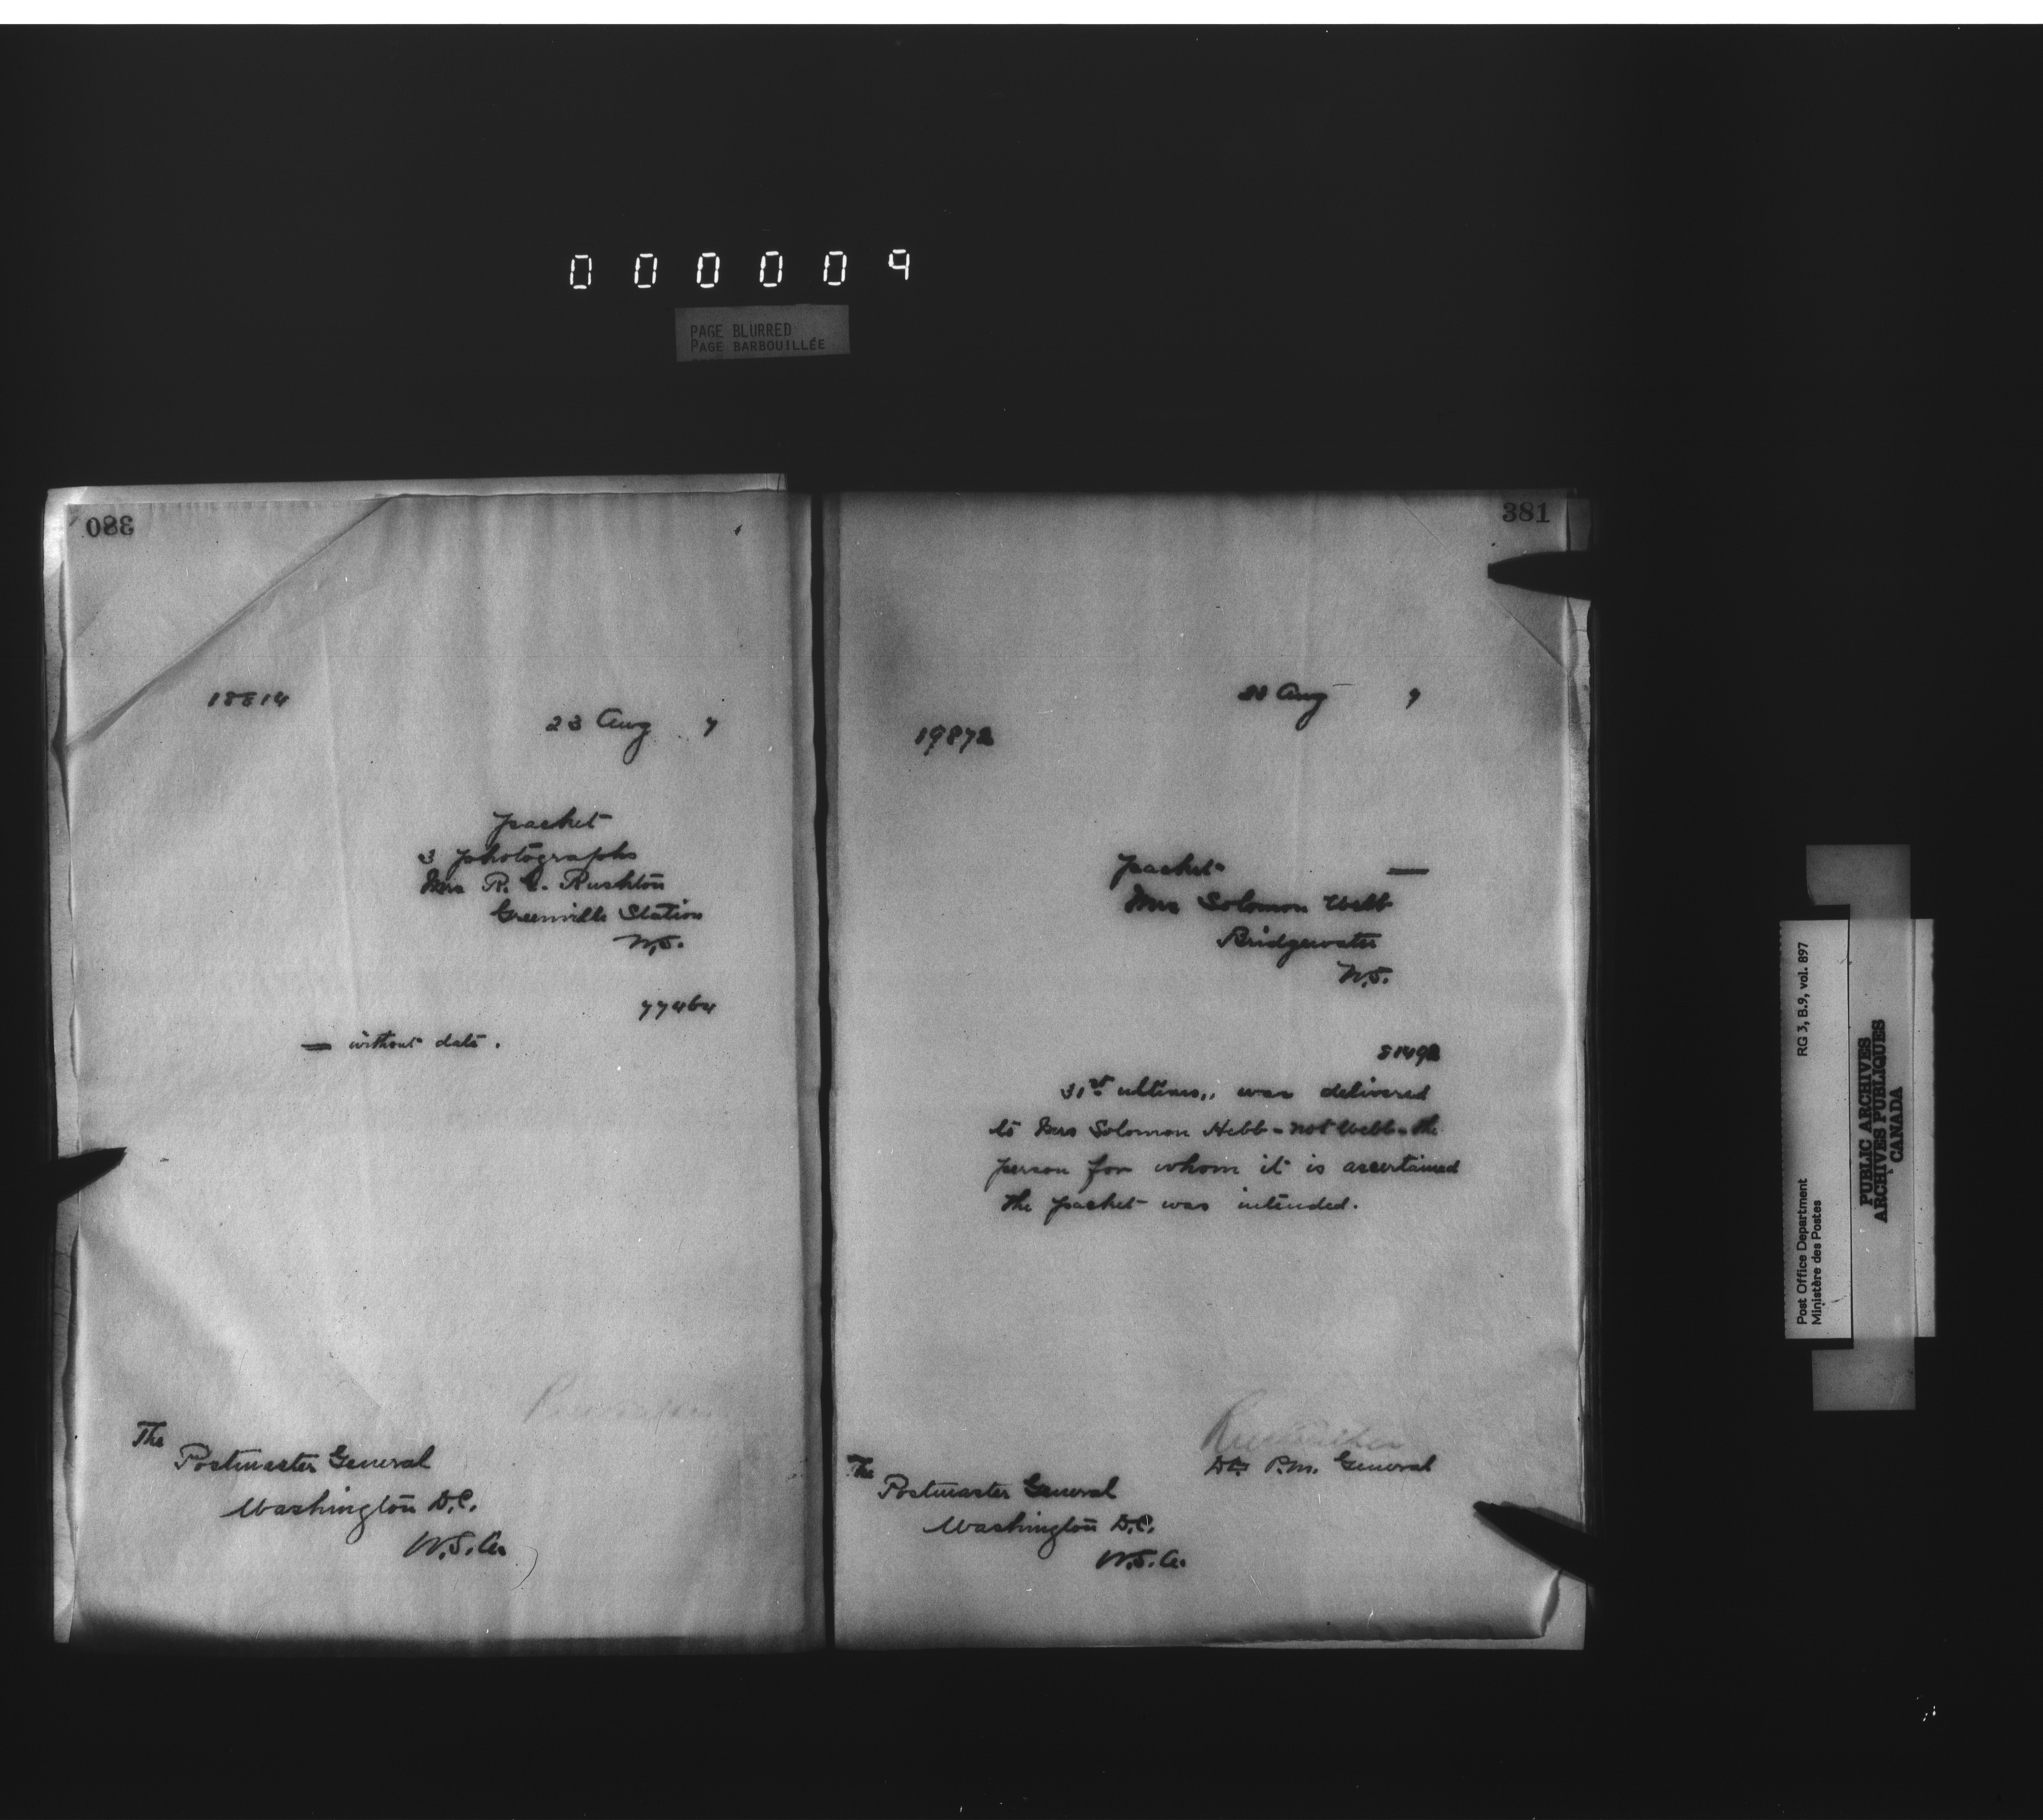 000009
PAGE BLURRED
PAGE BARBOUILLÉE
380
18814
23 Aug 7
packet
3 photographs
Mrs R. C. Rushton
Greenville Station
N.S.
77464
— without date.
The
Postmaster General
Washington D.C.
U.S.A.
381
Aug 7
19872
packet —
Mrs Solomon Webb
Bridgewater
N.S.
81492
31st ultimo,, was delivered
to Mrs Solomon Hebb - not Webb - the
person for whom it is ascertained
the packet was intended.
Dty P.M. General
The
Postmaster General
Washington D.C.
U.S.A.
Post Office Department
Ministère des Postes
RG 3, B.9, vol. 897
PUBLIC ARCHIVES
ARCHIVES PUBLIQUES
CANADA